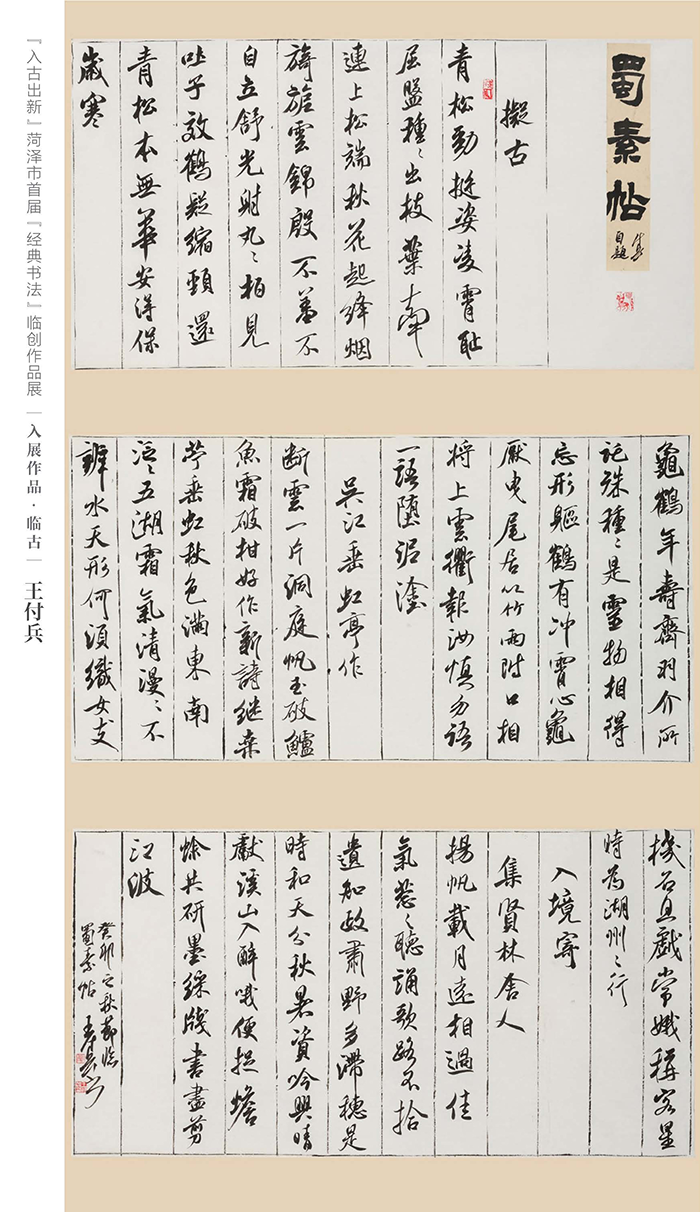 『入古出新』菏泽市首届『经典书法』临创作品展｜入展作品·临古｜王付兵
蜀素帖
自題
擬古
青松勁挺姿凌霄耻
屈盤種〻出枝葉牽
連上松端秋花起絳烟
旖旎雲錦殷不羞不
自立舒光射丸〻柏見
吐子效鶴疑縮頸還
青松本無華安得保
歲寒
龜鶴年壽齊羽介所
託殊種〻是靈物相得
忘形軀鶴有冲霄心龜
厭曳尾居以竹兩附口相
將上雲衢報汝慎勿語
一語墮泥塗
吳江垂虹亭作
断雲一片洞庭帆玉破鱸
魚霜破柑好作新詩継桒
苧垂虹秋色滿東南
泛〻五湖霜氣清漫〻不
辨水天形何須織女支
機石且戲常娥稱客星
時為湖州之行
入境寄
集賢林舍人
揚帆載月遠相過佳
氣葱〻聽誦歌路不拾
遺知政肅野多滯穗是
時和天分秋暑資吟興晴
獻溪山入醉哦便捉蟾
蜍共研墨綵牋書盡剪
江波
癸卯之秋節臨
蜀素帖